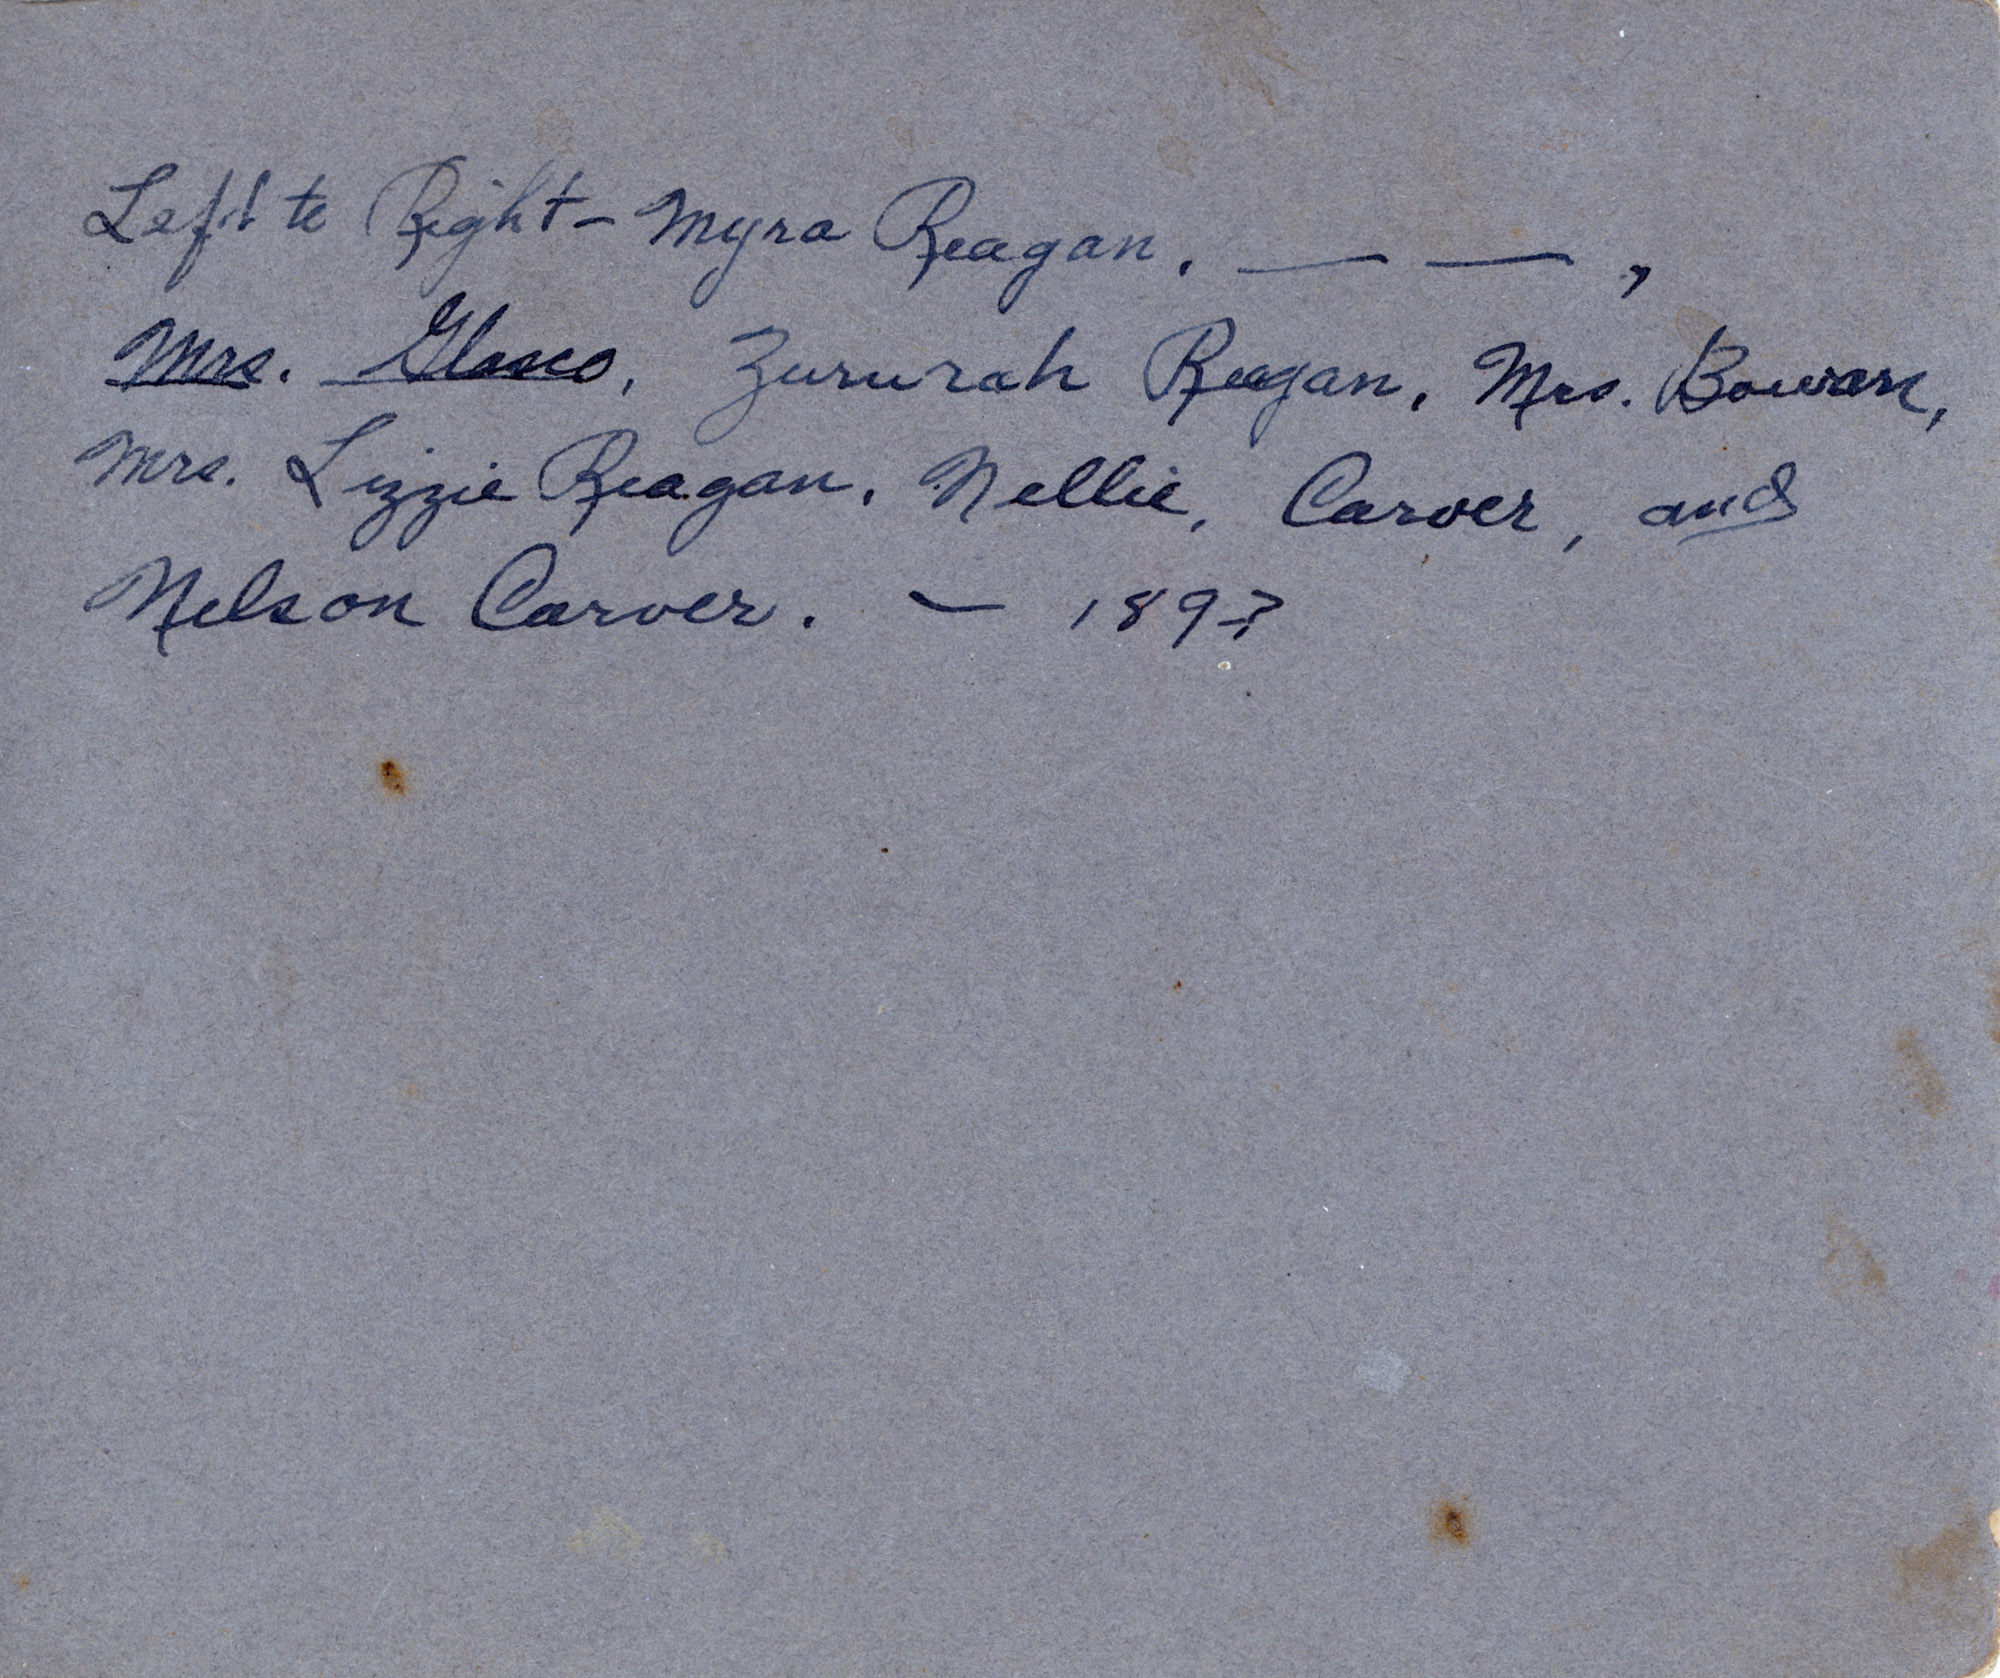 Left to Right - Myra Reagan, — — ,
Mrs. Glasco, Zururah Reagan, Mrs. Bowan,
Mrs. Lizzie Reagan, Nellie, Carver, and
Nelson Carver. — 189-?